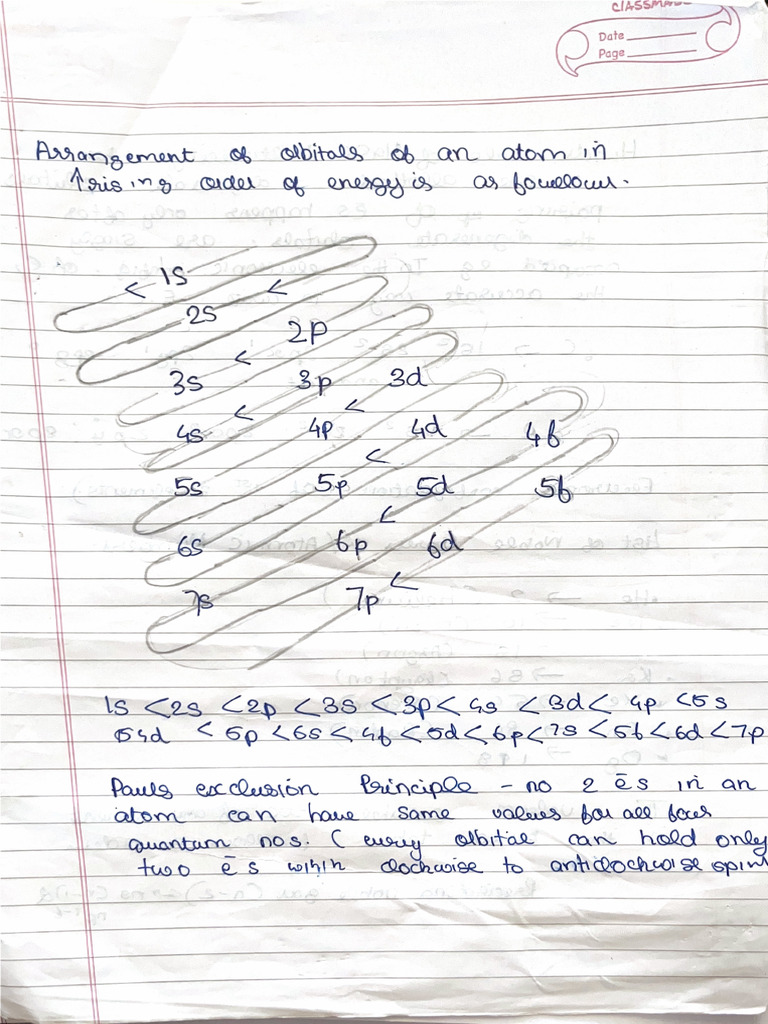 CLASSMATE
Date
Page
Arrangement of olbitals of an atom in
↑rising order of energy is as fouelowl.
1s
2s 2p
3s 3p 3d
4s 4p 4d 4f
5s 5p 5d 5f
6s 6p 6d
7s 7p
1s < 2s < 2p < 3s < 3p < 4s < 3d < 4p < 5s
4d < 5p < 6s < 4f < 5d < 6p < 7s < 5f < 6d < 7p
Pauls exclusion Principle - no 2 ēs in an
atom can have same values for all four
quantum nos. ( every olbital can hold only
two ēs within clockwise to anticlockwise spin